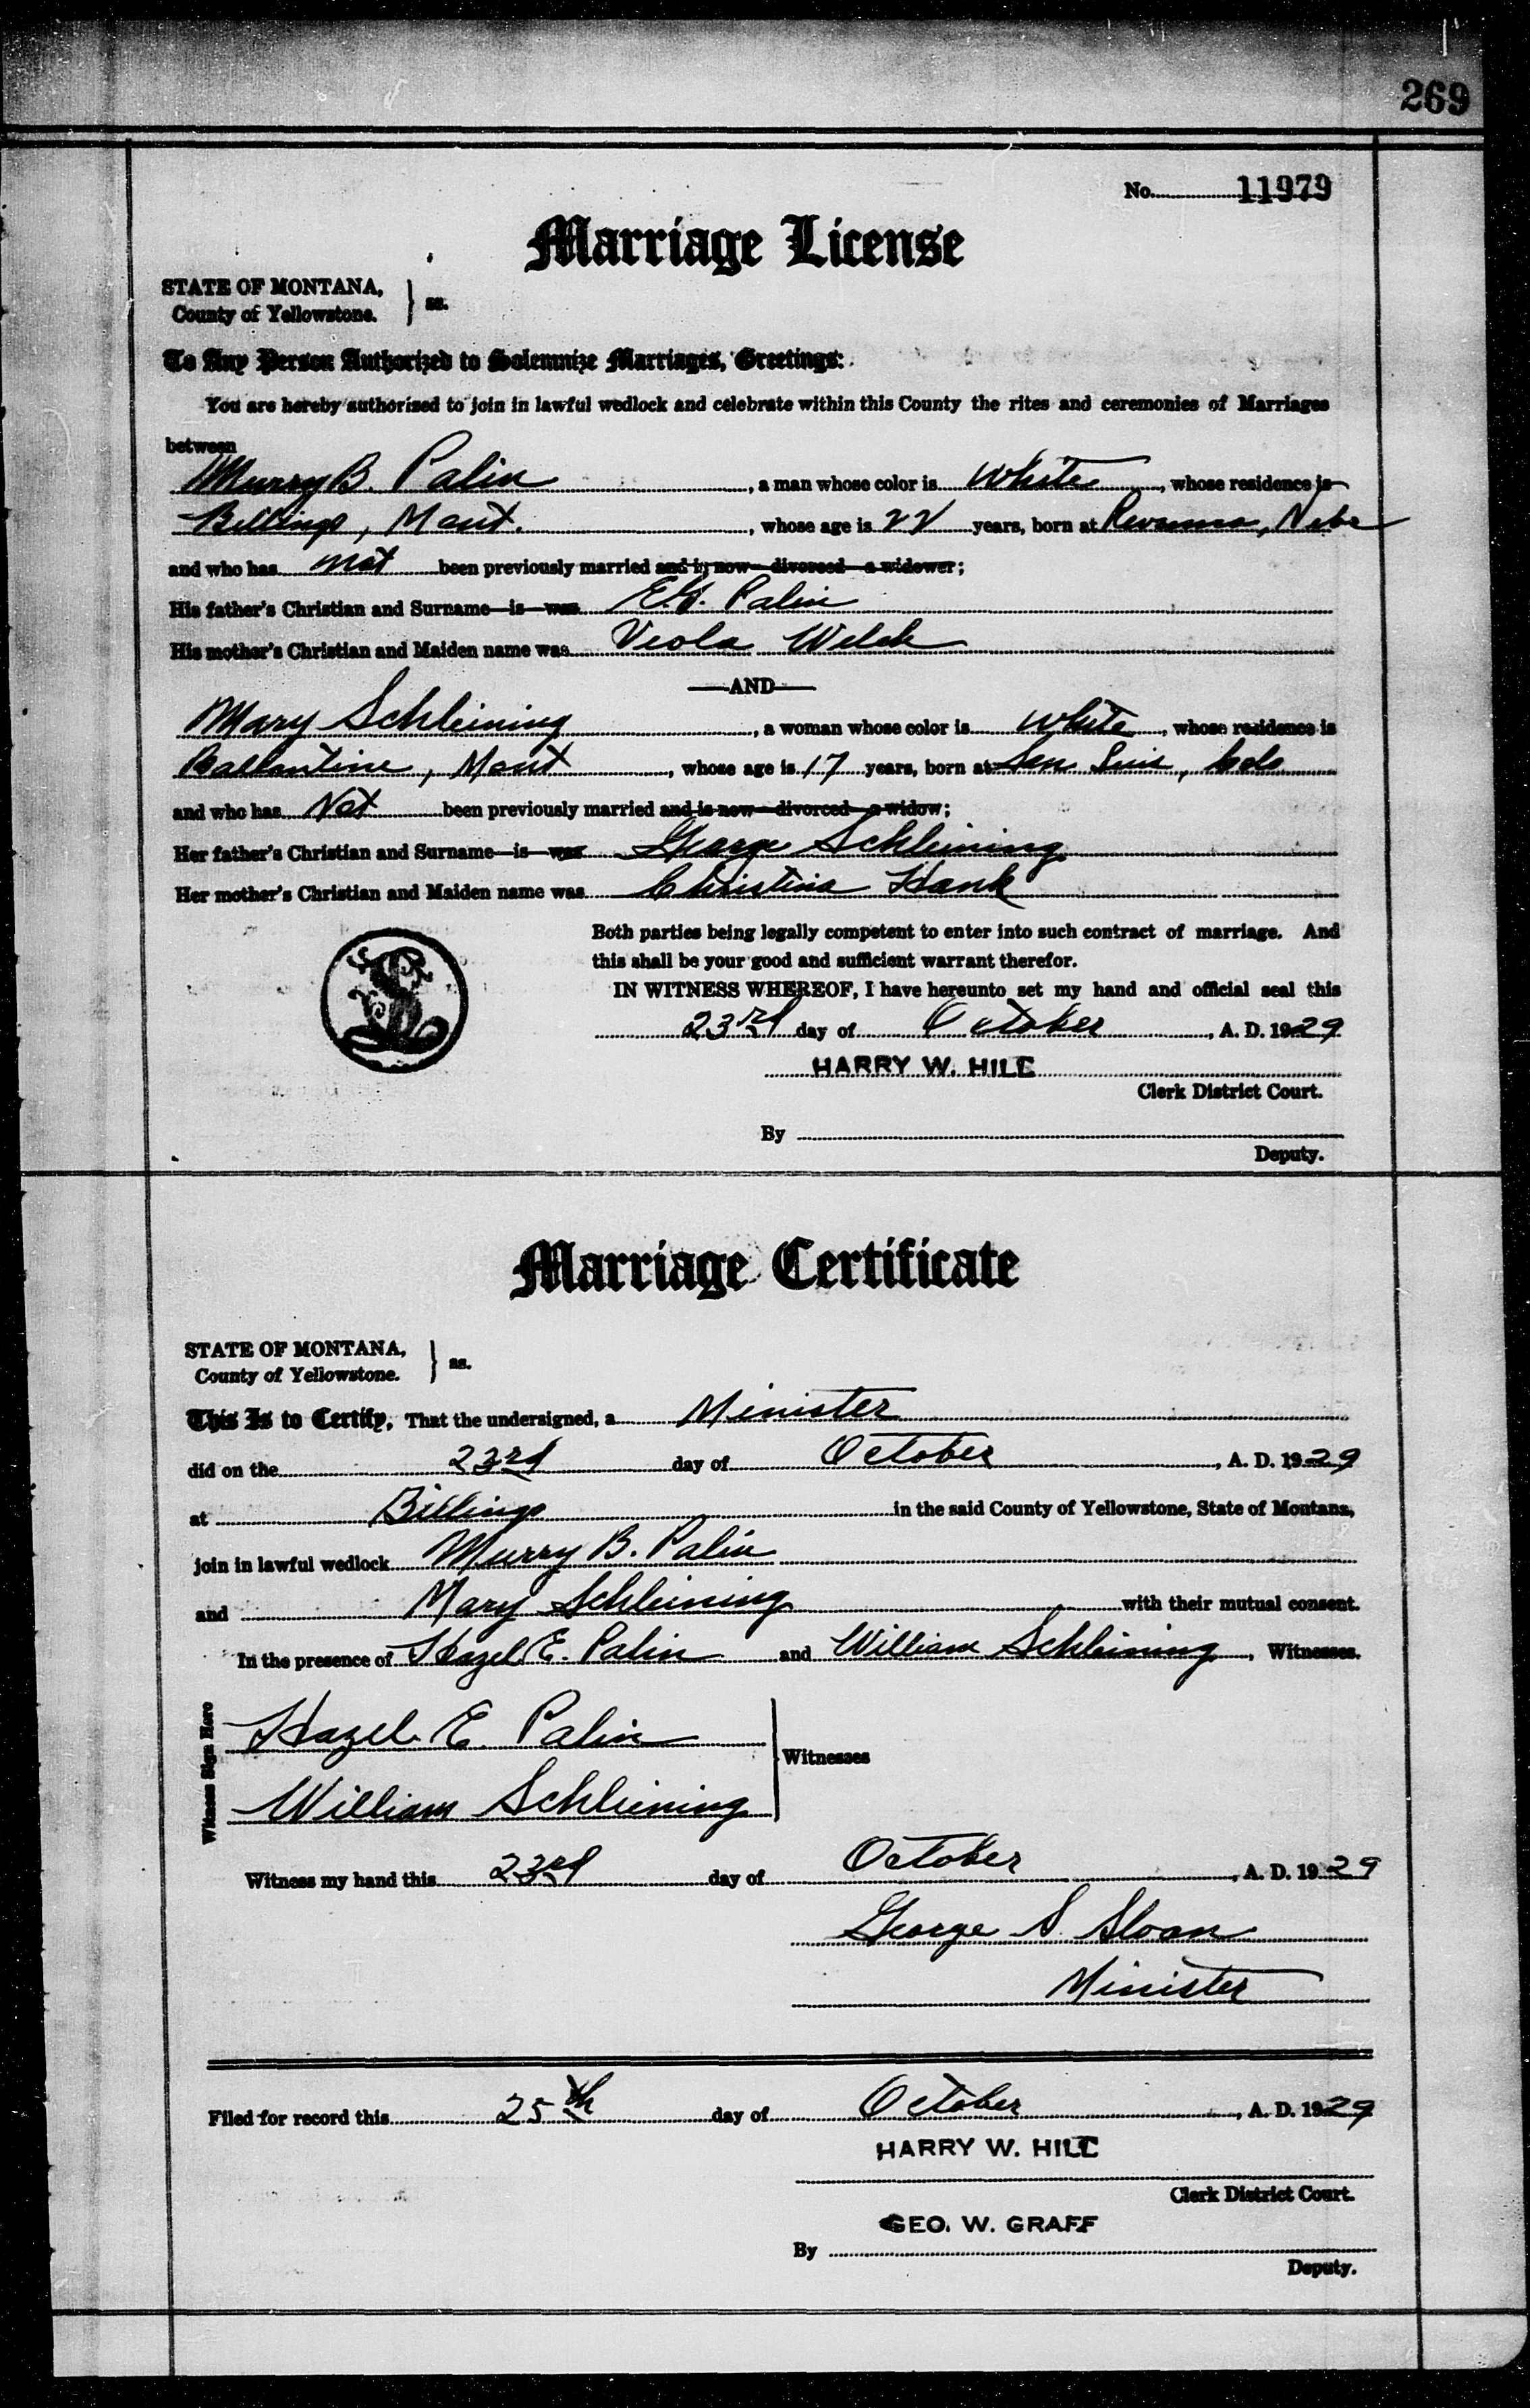 269
No. 11979
Marriage License
STATE OF MONTANA,
County of Yellowstone. } ss.
To Any Person Authorized to Solemnize Marriages, Greetings:
You are hereby authorized to join in lawful wedlock and celebrate within this County the rites and ceremonies of Marriages
between
Murry B. Palin, a man whose color is White, whose residence is
Billings, Mont., whose age is 22 years, born at Ravenna, Nebr
and who has not been previously married and is now—divorced—a widower;
His father's Christian and Surname—is—was E.G. Palin
His mother's Christian and Maiden name was Viola Welch
—AND—
Mary Schleining, a woman whose color is White, whose residence is
Ballantine, Mont, whose age is 17 years, born at San Luis, Colo
and who has Not been previously married and is now—divorced—a widow;
Her father's Christian and Surname—is—was George Schleining
Her mother's Christian and Maiden name was Christina Hank
Both parties being legally competent to enter into such contract of marriage. And
this shall be your good and sufficient warrant therefor.
IN WITNESS WHEREOF, I have hereunto set my hand and official seal this
23rd day of October, A. D. 1929
HARRY W. HILL
Clerk District Court.
By
Deputy.
Marriage Certificate
STATE OF MONTANA,
County of Yellowstone. } ss.
This Is to Certify, That the undersigned, a Minister
did on the 23rd day of October, A. D. 1929
at Billings in the said County of Yellowstone, State of Montana,
join in lawful wedlock Murry B. Palin
and Mary Schleining with their mutual consent.
In the presence of Hazel E. Palin and William Schleining, Witnesses.
Witness Sign Here
Hazel E. Palin
Witnesses
William Schleining
Witness my hand this 23rd day of October, A. D. 1929
George S. Sloan
Minister
Filed for record this 25th day of October, A. D. 1929
HARRY W. HILL
Clerk District Court.
GEO. W. GRAFF
By
Deputy.